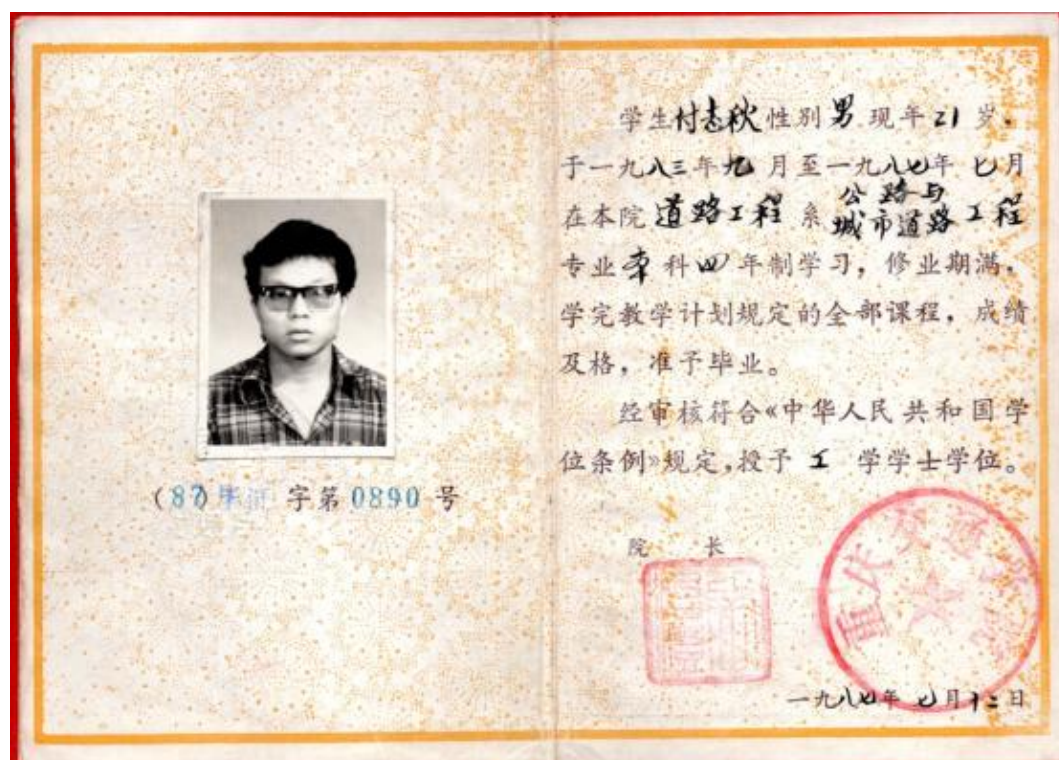 (87)毕证 字第 0890 号
学生付志秋性别男现年21岁，
于一九八三年九月至一九八七年七月
在本院道路工程系公路与城市道路工程
专业本科四年制学习，修业期满，
学完教学计划规定的全部课程，成绩
及格，准予毕业。
经审核符合《中华人民共和国学
位条例》规定，授予工学学士学位。
院 长
重庆交通学院
一九八七年七月十二日